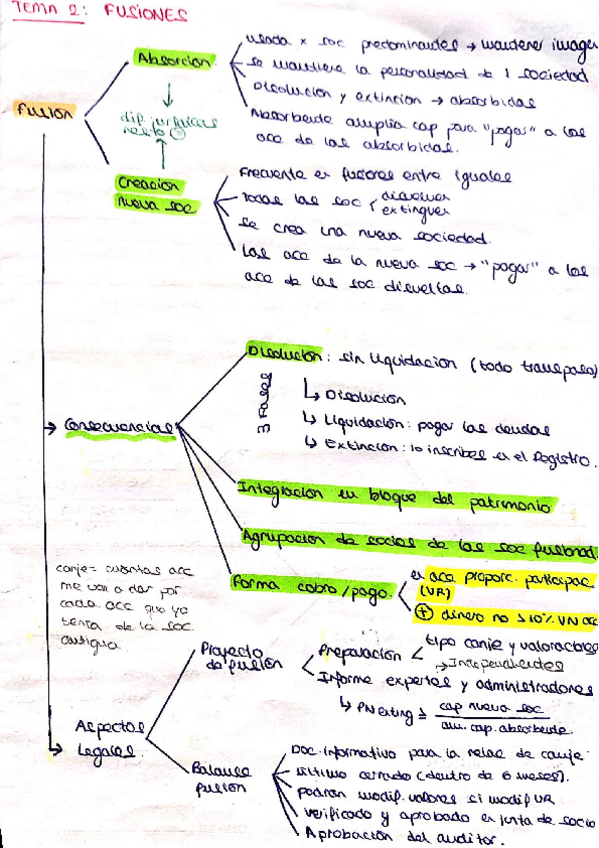 TEMA 2: FUSIONES
Fusión
Absorción
usada x soc predominantes → mantener imagen
se mantiene la personalidad de 1 sociedad
Disolución y extinción → absorbidas
Absorbente amplía cap para "pagar" a los
acc de las absorbidas.
dif. jurídicas
resto =
Creación
nueva soc
Frecuente en fusiones entre iguales
Todas las soc disuelven
extinguen
Se crea una nueva sociedad.
Las acc de la nueva soc → "pagar" a los
acc de las soc disueltas.
Consecuencias
Disolución: sin liquidación (todo traspaso)
3 Fases
↳ Disolución
↳ Liquidación: pagar las deudas
↳ Extinción: lo inscribes en el Registro.
Integración en bloque del patrimonio
Agrupación de socios de las soc fusionad
Forma cobro/pago.
en acc proporc. participac
(VR)
+ dinero no > 10% VN acc
canje = cuántas acc
me van a dar por
cada acc que yo
tenía de la soc.
antigua
Aspectos
Legales.
Proyecto
de fusión
Preparación
tipo canje y valoraciones
→ Independientes
Informe expertos y administradores
↳ PN exting ≥ cap nueva soc
au. cap. absorbente
Balance
fusión
Doc. informativo para la relac de canje
último cerrado (dentro de 6 meses).
podrán modif. valores si modif VR
verificado y aprobado en junta de socio
Aprobación del auditor.